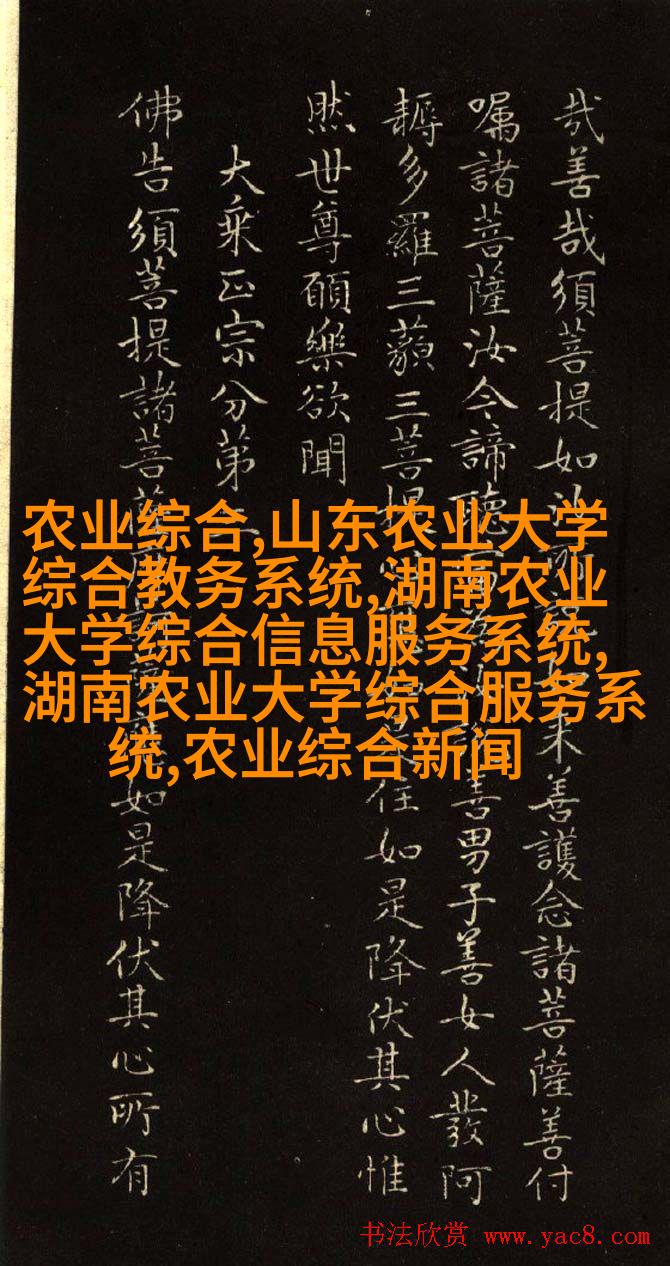 哉善哉須菩提如汝所說如来善護念諸菩薩善付
囑諸菩薩汝今諦聽當為汝說善男子善女人發阿
耨多羅三藐三菩提應住如是降伏其心惟
然世尊願樂欲聞
大乘正宗分第三
佛告須菩提諸菩薩摩訶薩應如是降伏其心所有
农业综合,山东农业大学
综合教务系统,湖南农业
大学综合信息服务系统,
湖南农业大学综合服务系
统,农业综合新闻
书法欣赏 www.yac8.com